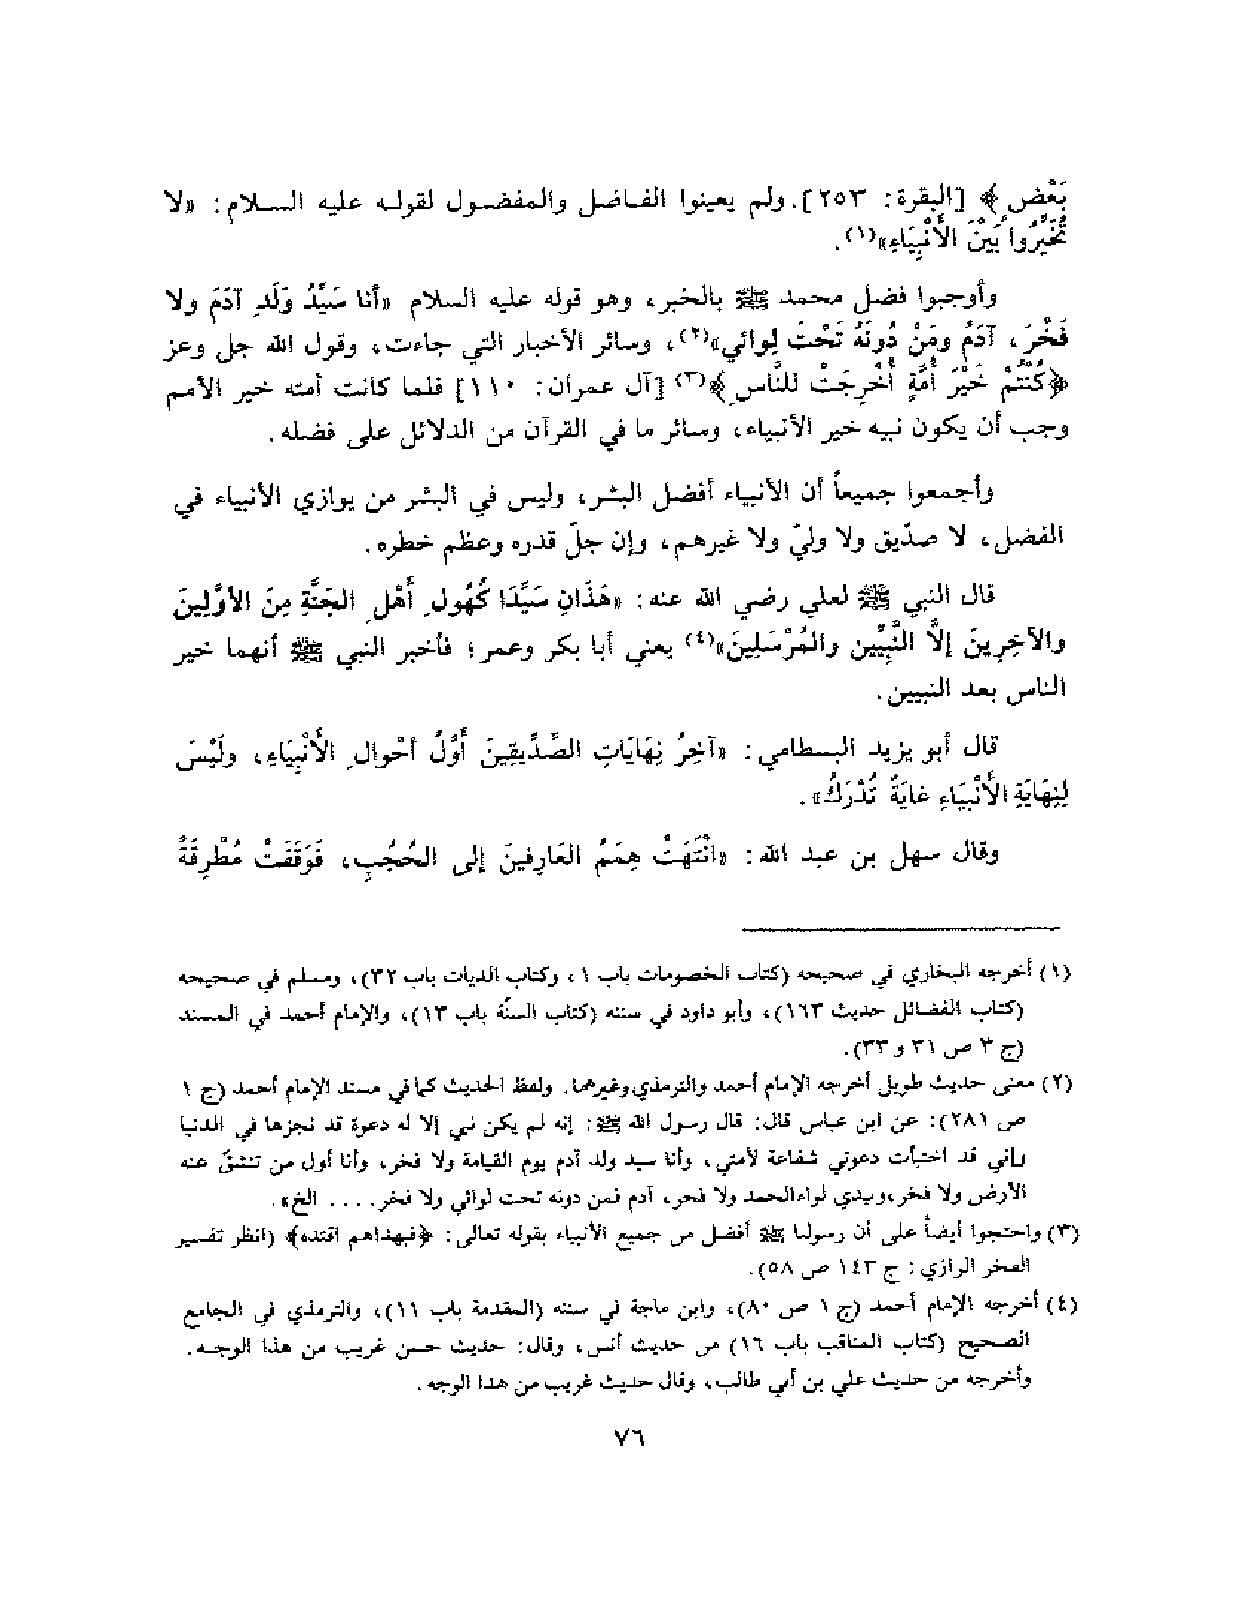 بَعْضٍ﴾ [البقرة: ٢٥٣]. ولم يعينوا الفاضل والمفضول لقوله عليه السلام: «لا
تُخَيِّرُوا بَيْنَ الأَنْبِيَاءِ»(١).
وأوجبوا فضل محمد ﷺ بالخبر، وهو قوله عليه السلام «أنا سَيِّدُ وَلَدِ آدَمَ ولا
فَخْرَ، آدَمُ ومَنْ دُونَهُ تَحْتَ لِوائي»(٢)، وسائر الأخبار التي جاءت، وقول الله جل وعز
﴿كُنْتُمْ خَيْرَ أُمَّةٍ أُخْرِجَتْ للنَّاسِ﴾(٣) [آل عمران: ١١٠] فلما كانت أمته خير الأمم
وجب أن يكون نبيه خير الأنبياء، وسائر ما في القرآن من الدلائل على فضله.
وأجمعوا جميعاً أن الأنبياء أفضل البشر، وليس في البشر من يوازي الأنبياء في
الفضل، لا صدّيق ولا وليّ ولا غيرهم، وإن جلّ قدره وعظم خطره.
قال النبي ﷺ لعلي رضي الله عنه: «هَذَانِ سَيِّدَا كُهُولِ أَهْلِ الجَنَّةِ مِنَ الأوَّلِينَ
والآخِرِينَ إلاَّ النَّبِيِّين والمُرْسَلِينَ»(٤) يعني أبا بكر وعمر؛ فأخبر النبي ﷺ أنهما خير
الناس بعد النبيين.
قال أبو يزيد البسطامي: «آخِرُ نِهَايَاتِ الصِّدِّيقِينَ أَوَّلُ أَحْوالِ الأَنْبِيَاءِ، ولَيْسَ
لِنِهَايَةِ الأَنْبِيَاءِ غايَةٌ تُدْرَكُ».
وقال سهل بن عبد الله: «انْتَهَتْ هِمَمُ العَارِفينَ إلى الحُجُبِ، فَوَقَفَتْ مُطْرِقَةً
(١) أخرجه البخاري في صحيحه (كتاب الخصومات باب ١، وكتاب الديات باب ٣٢)، ومسلم في صحيحه
(كتاب الفضائل حديث ١٦٣)، وأبو داود في سننه (كتاب السنّة باب ١٣)، والإمام أحمد في المسند
(ج ٣ ص ٣١ و ٣٣).
(٢) معنى حديث طويل أخرجه الإمام أحمد والترمذي وغيرهما. ولفظ الحديث كما في مسند الإمام أحمد (ج ١
ص ٢٨١): عن ابن عباس قال: قال رسول الله ﷺ: إنه لم يكن نبي إلا له دعوة قد تنجزها في الدنيا
وإني قد اختبأت دعوتي شفاعة لأمتي، وأنا سيد ولد آدم يوم القيامة ولا فخر، وأنا أول من تنشقّ عنه
الأرض ولا فخر، وبيدي لواء الحمد ولا فخر، آدم فمن دونه تحت لوائي ولا فخر. . . . الخ».
(٣) واحتجوا أيضاً على أن رسولنا ﷺ أفضل من جميع الأنبياء بقوله تعالى: ﴿فبهداهم اقتده﴾ (انظر تفسير
الفخر الرازي: ج ١٤٣ ص ٥٨).
(٤) أخرجه الإمام أحمد (ج ١ ص ٨٠)، وابن ماجة في سننه (المقدمة باب ١١)، والترمذي في الجامع
الصحيح (كتاب المناقب باب ١٦) من حديث أنس، وقال: حديث حسن غريب من هذا الوجه.
وأخرجه من حديث علي بن أبي طالب، وقال حديث غريب من هذا الوجه.
٧٦